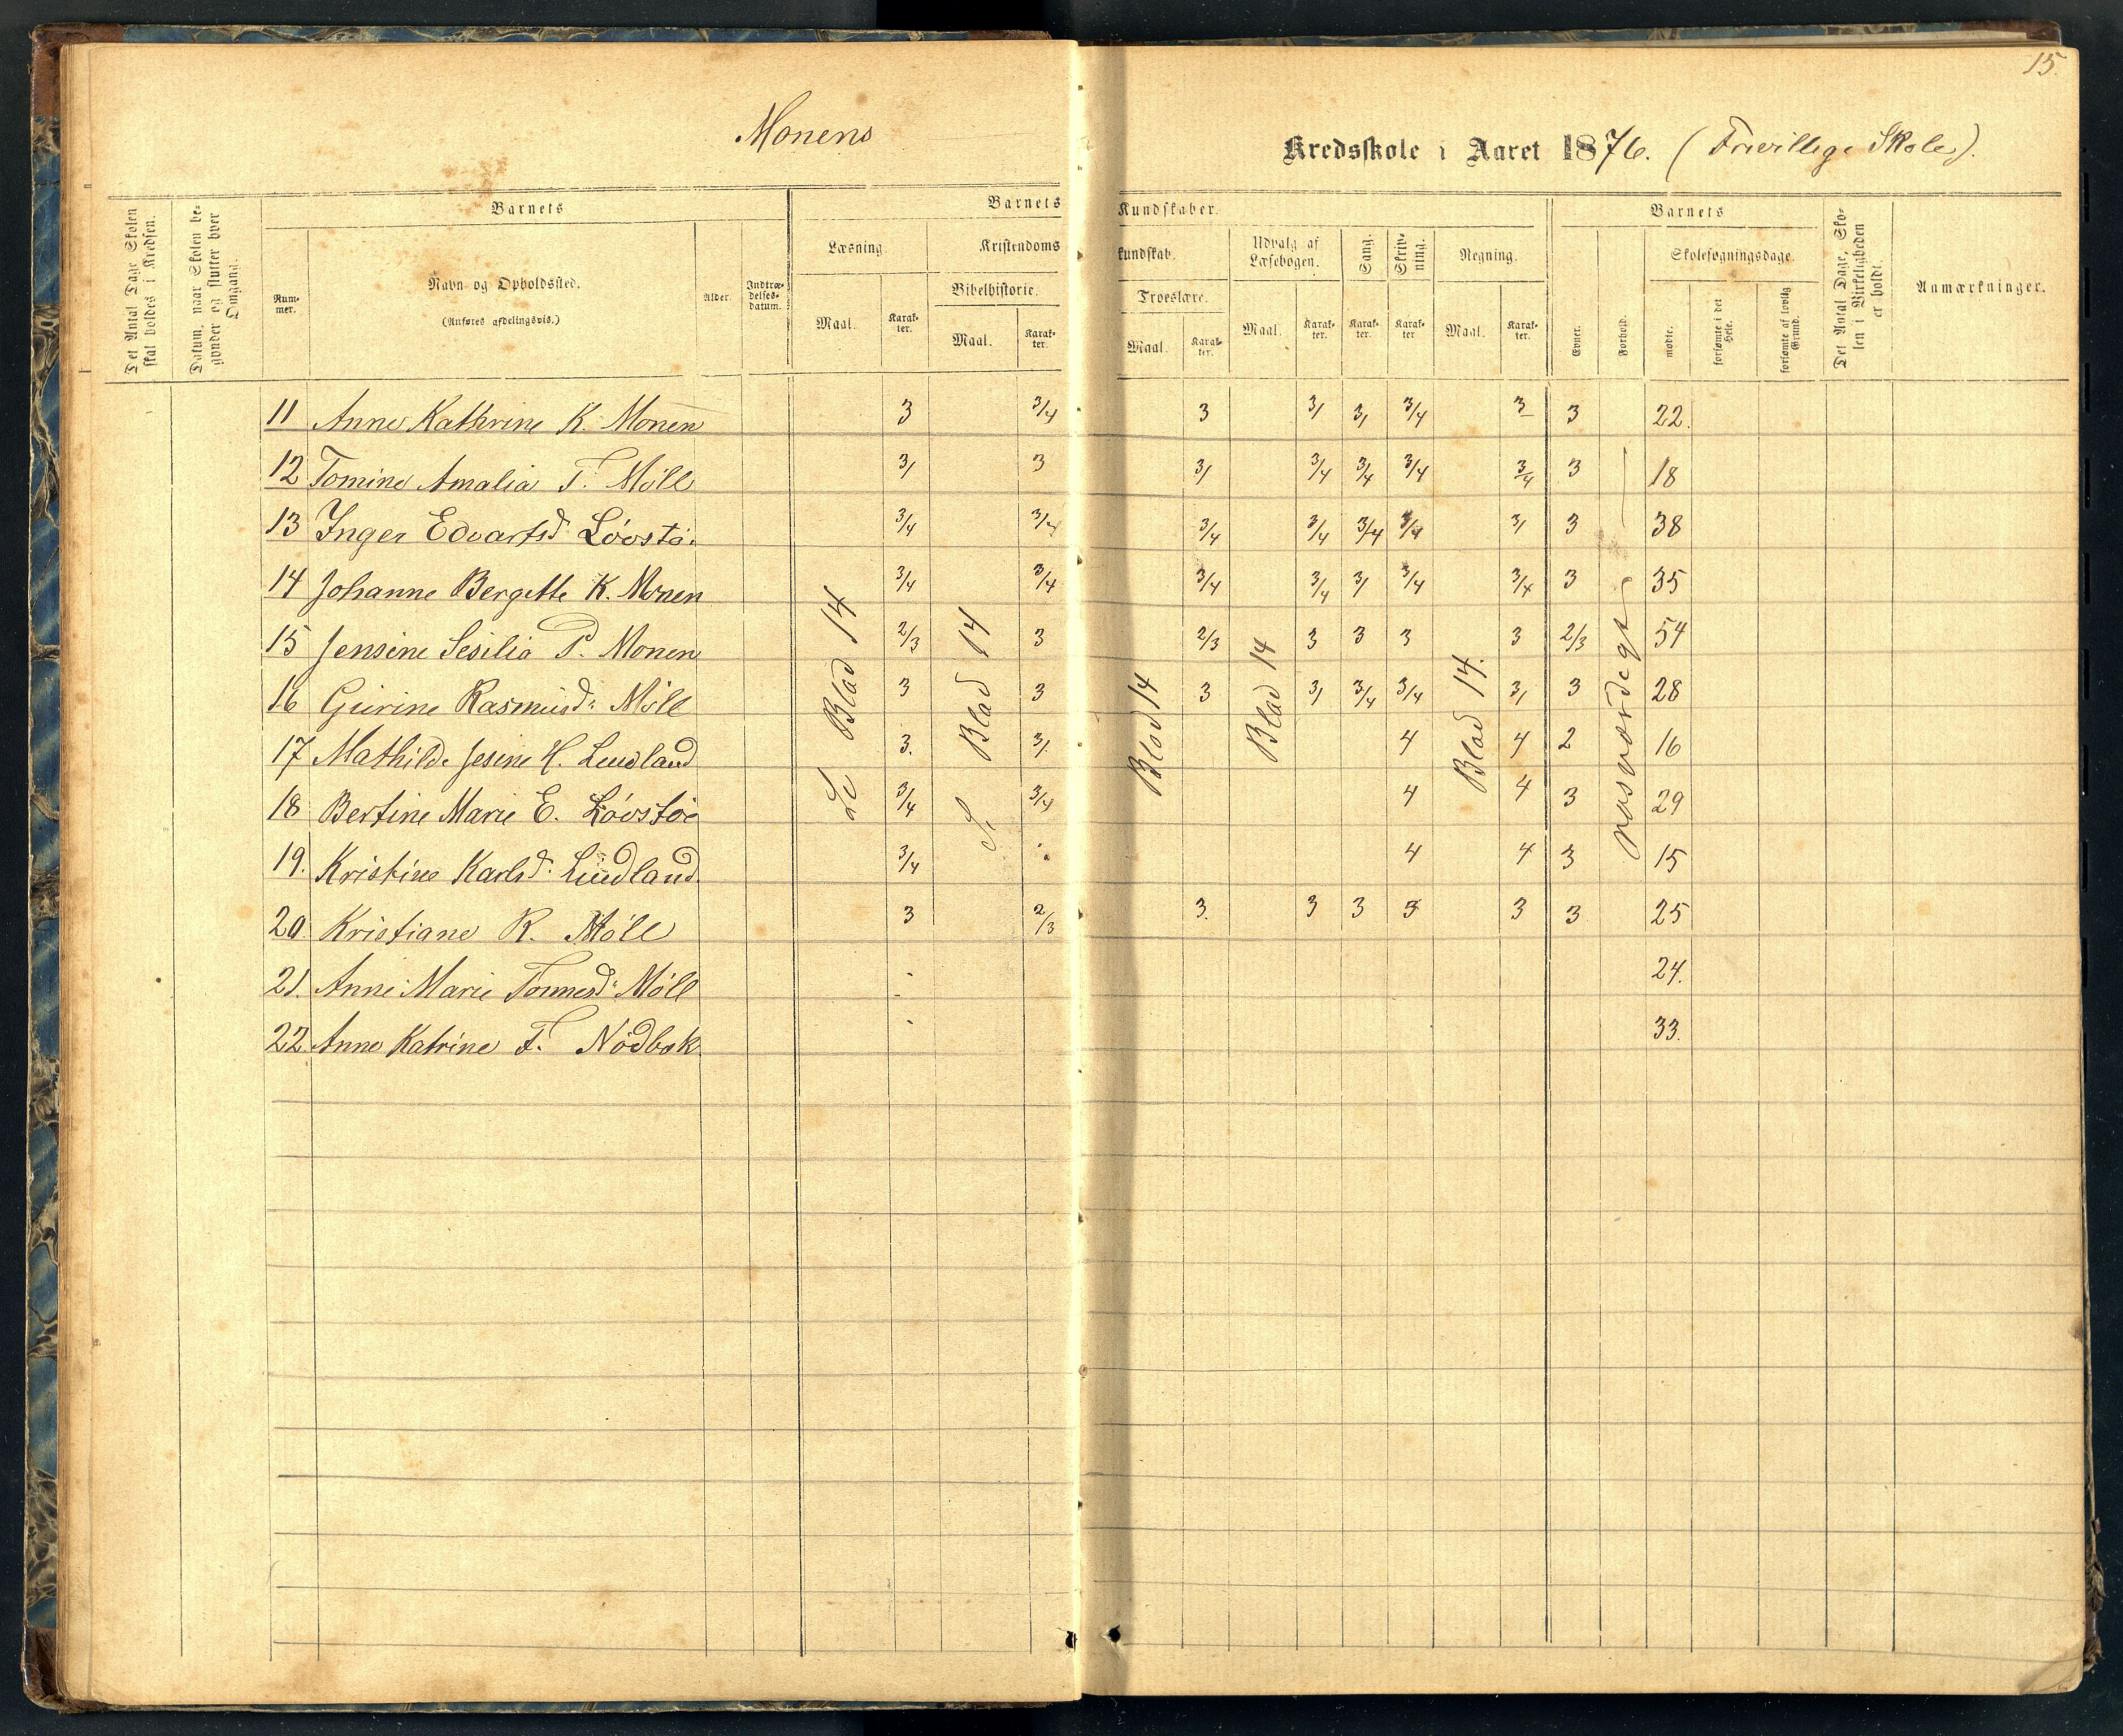 15.
Monens
Kredsskole i Aaret 1876. (Frivillige Skole).
Det Antal Dage Skolen skal holdes i Kredsen.
Datum, naar Skolen begynder og slutter hver Omgang.
Barnets
Barnets
Kundskaber.
Barnets
Det Antal Dage, Skolen i Virkeligheden er holdt.
Anmærkninger.
Nummer.
Navn og Opholdssted.
(Anføres afdelingsvis.)
Alder.
Indtrædelsesdatum.
Læsning.
Kristendoms
kundskab.
Udvalg af Læsebogen.
Sang.
Skrivning.
Regning.
Evner.
Forhold.
Skolesøgningsdage.
Bibelhistorie.
Troeslære.
Maal.
Karakter.
Maal.
Karakter.
Maal.
Karakter.
Maal.
Karakter.
Karakter.
Karakter
Maal.
Karakter.
mødte.
forsømte i det Hele.
forsømte af lovlig Grund.
11 Anne Kathrine K. Monen 3 3/4 3 3/ 3/ 3/4 3 3 22.
12 Tomine Amalia T. Möll 3/ 3 3/ 3/4 3/4 3/4 3/4 3 18
13 Inger Edvartsd Lövstö. 3/4 3/4 3/4 3/4 3/4 3/4 3/ 3 38
14 Johanne Bergitte K. Monen 3/4 3/4 3/4 3/4 3/ 3/4 3/4 3 35
15 Jensine Sesilia P. Monen 2/3 3 2/3 3 3 3 3 2/3 54
16 Gurine Rasmusd: Möll 3 3 3 3/ 3/4 3/4 3/ 3 28
17 Mathilde Jesine H. Lundland 3. 3/. 4 4 2 16
18 Bertine Marie E. Lövstöe 3/4 3/4 4 4 3 29
19. Kristine Karlsd: Lundland. 3/4 4 4 3 15
20. Kristiane R. Möll 3 2/3 3. 3 3 3 3 3 25
21. Anne Marie Tönnesd: Möll 24.
22. Anne Katrine F. Nödbak. 33.
Blad 14
Blad 14
Blad 14
Blad 14
Blad 14.